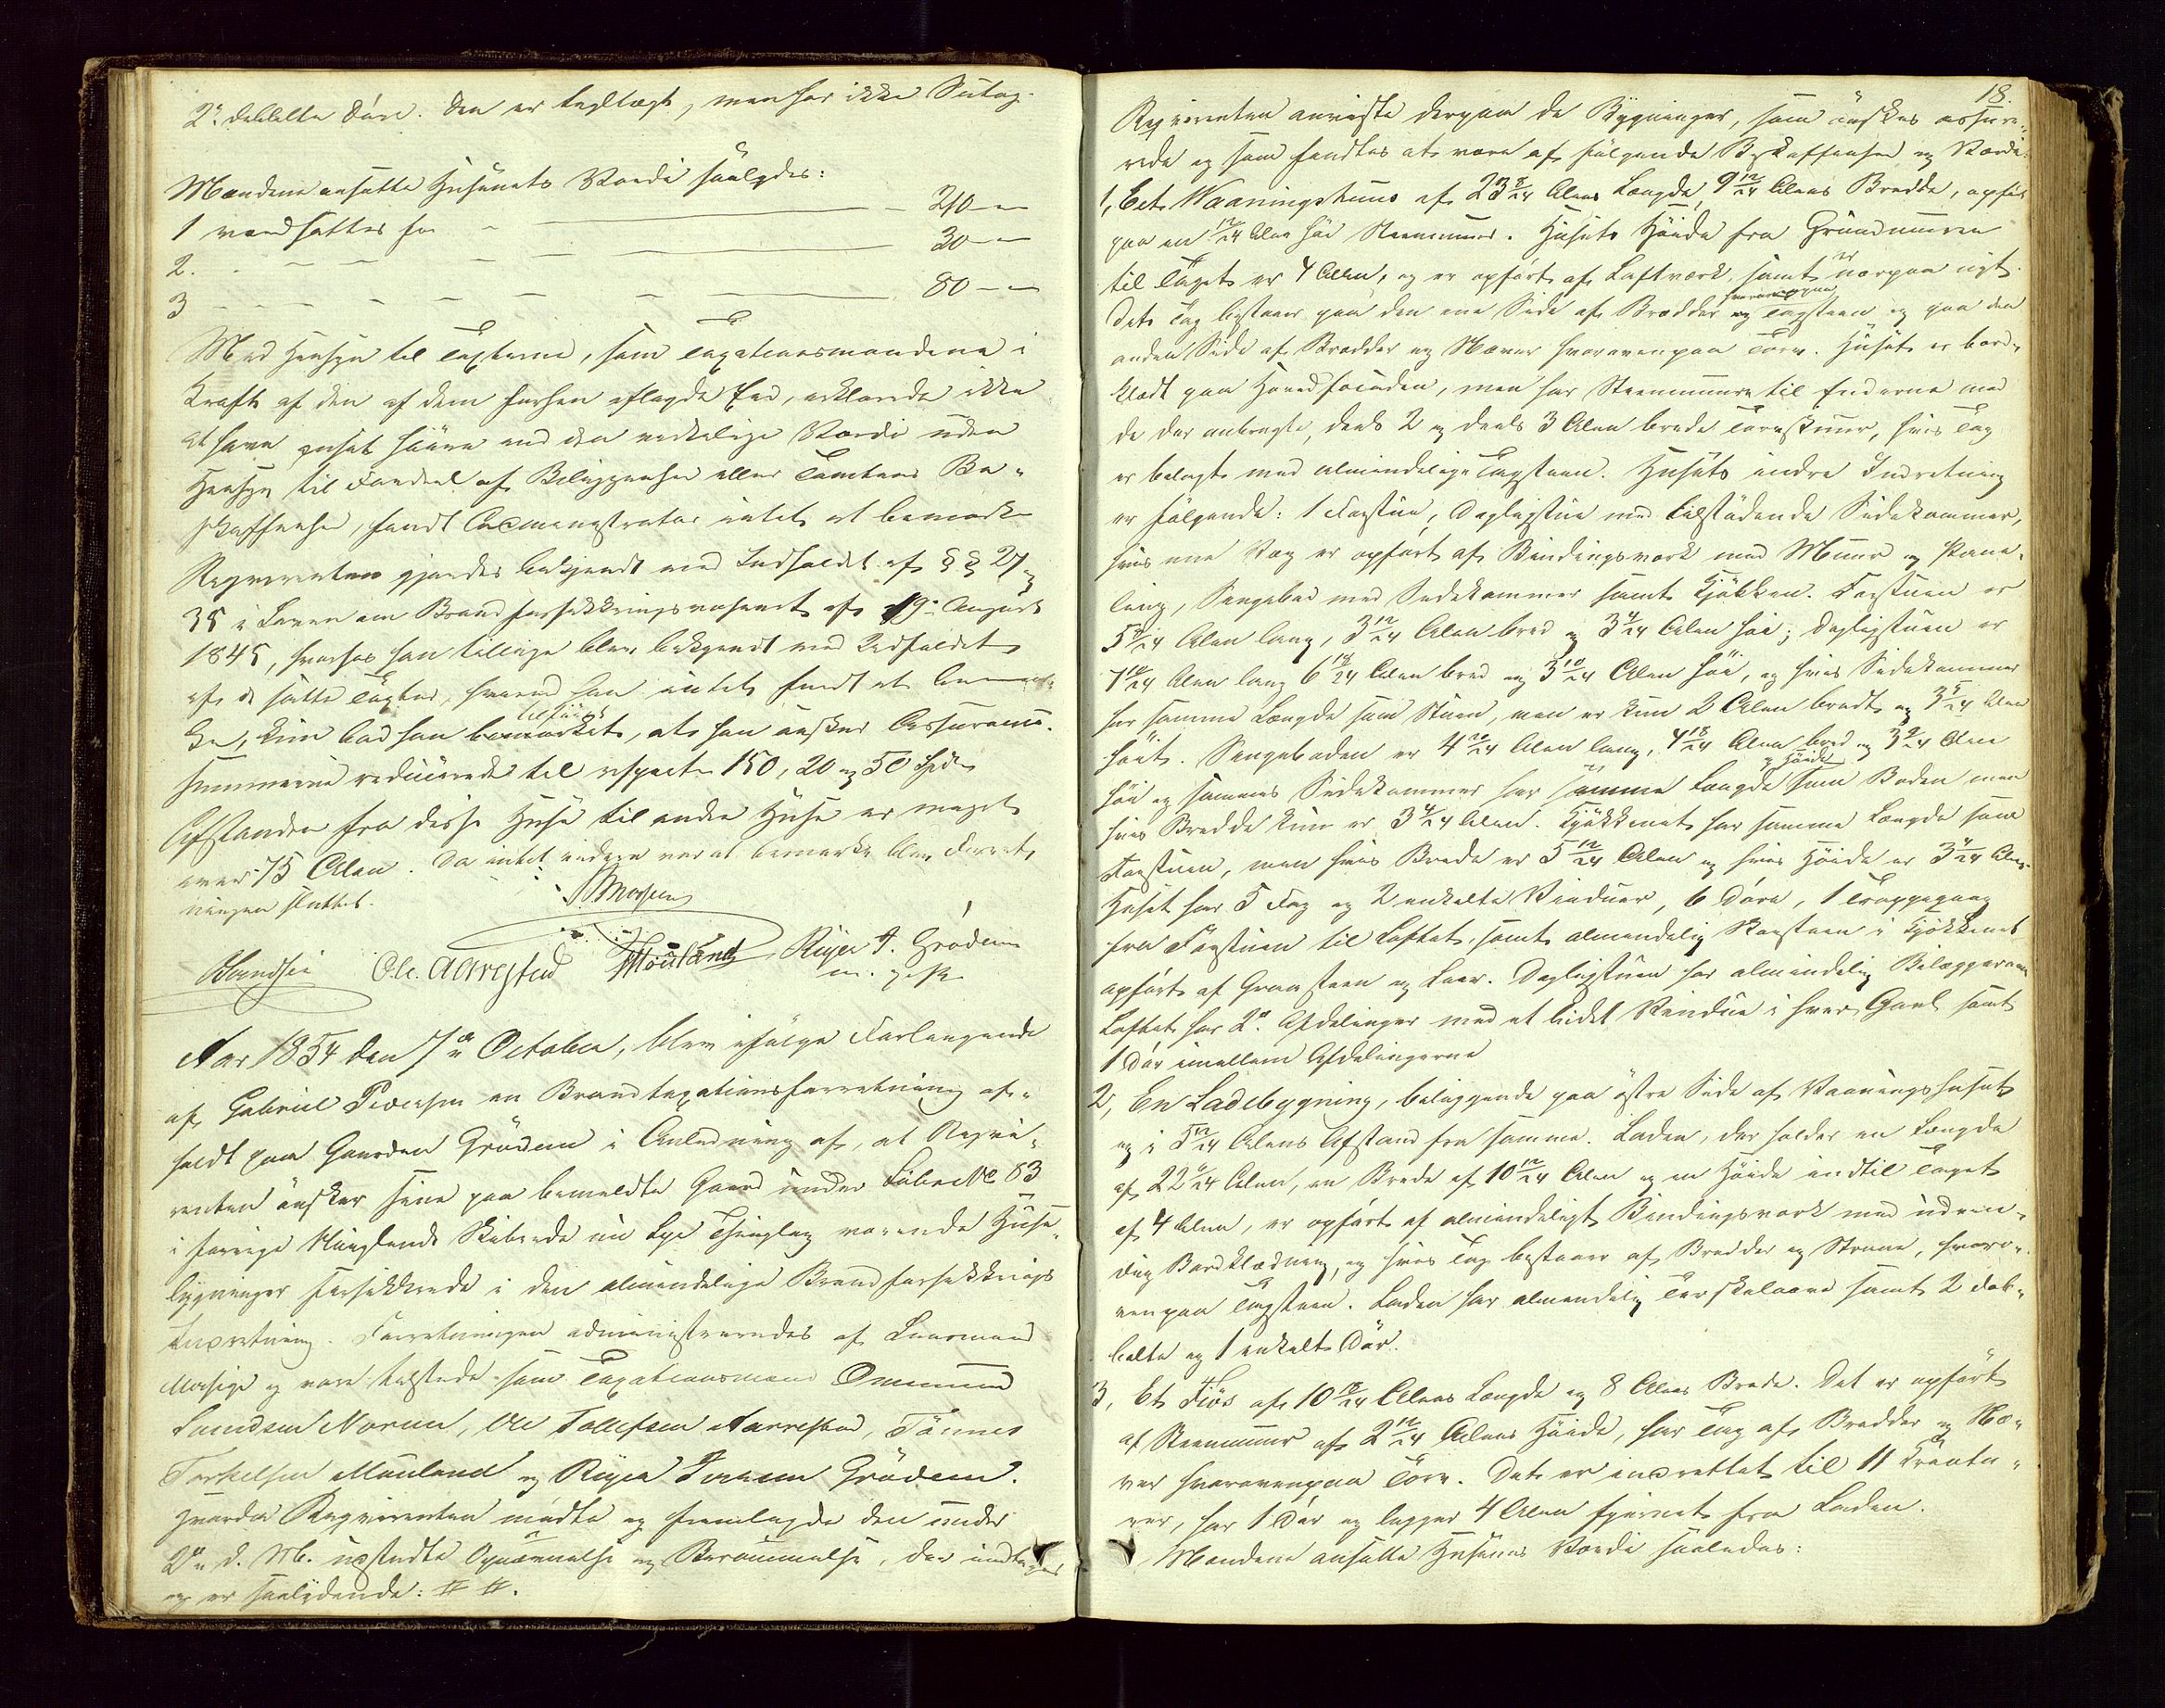 2de dobbelte Døre. Den er tegllagt, men har ikke Sutag.
Mændene ansatte Husenets Værdi saalydes:
1 værdsattes for — 240 — —
2. — — — 30 — —
3 — — — 80 — —
Med Hensyn til Taxterne, som Taxationsmændene i
Kraft af den af dem forhen aflagde Eed, erklærede ikke
at have ansat høiere end den virkelige Værdi uden
Hensyn til Fordeel af Beliggenhed eller Tomtens Be-
skaffenhed, fandt Administrator intet at bemærke
Reqvirenten gjordes bekjendt med Indholdet af §§ 27 og
38 i Loven om Brandforsikkringsvæsenet af 19de August
1845, hvorhos han tillige blev bekjendt med Indholdet
af de satte Taxter, hvorved han intet fandt at bemær-
ke, kun bad han tilført bemærket, at han ønsker Assurance-
summerne reducerede til respective 150, 20 og 50 Spd.
Afstanden fra disse Huse til andre Huse er meget
over 75 Alen. Da intet videre var at bemærke blev Forret-
ningen sluttet.
Ole Aarrestad TMouland Reyer T. Grødem
m. p. P.
Aar 1854 den 7de October, blev ifølge Forlangende
af Gabriel Pedersen en Brandtaxationsforretning af-
holdt paa Gaarden Grødem i Anledning af, at Reqvi-
renten ønsker sine paa bemeldte Gaard under Løbe No 83
i forrige Haaglands Skibrede nu Lye Thinglag værende Huse-
bygninger forsikkrede i den almindelige Brandforsikkrings
Indretning. Forretningen administreredes af Lensmand
Mossige og vare tilstede som Taxationsmænd Ommund
Larsen Norem, Ole Tollefsen Aarrestad, Tønnes
Torkelsen Mouland og Reyer Grødem.
Hvorda Reqvirenten mødte og fremlagde den under
2den d. M. udstedte Opnævnelse og Berammelse, der indtages
og er saalydende: # #.
18.
Reqvirenten anviste derpaa de Bygninger, som ønskes assure-
rede og som fandtes at være af følgende Beskaffenhed og Værdi:
1, Eet Vaaningshuus af 23 8/24 Alens Længde, 9 12/24 Alens Bredde, opført
paa en 12/24 Alen høi Steenmuur. Husets Høide fra Grundmuren
til Taget er 4 Alen, og er opført af Loftværk, samt er næsten nyt.
Dets Tag bestaaer paa den ene Side af Brædder hvorovenpaa Tagsteen og paa den
anden Side af Brædder og Næver hvorovenpaa Torv. Huset er bord-
klædt paa Hovedfacaden, men har Steenmure til Enderne med
de der anbragte, deels 2 og deels 3 Alen brede Torvskuur, hvis Tag
er belagt med almindelige Tagsteen. Husets indre Indretning
er følgende: 1 Forstue, Dagligstue med tilstødende Sidekammer,
hvis ene Væg er opført af Bindingsværk med Muur og Pane-
ling, Sengebod med Sidekammer samt Kjøkken. Forstuen er
5 8/24 Alen lang, 3 12/24 Alen bred og 3 4/24 Alen høi; Dagligstuen er
7 18/24 Alen lang 6 18/24 Alen bred og 3 10/24 Alen høi, og hvis Sidekammer
har samme Længde som Stuen, men er kun 2 Alen bredt og 3 5/24 Alen
høit. Sengeboden er 4 20/24 Alen lang, 4 18/24 Alen bred og 3 9/24 Alen
høi og sammes Sidekammer har samme Længde og Høide som Boden men
hvis Bredde kun er 3 4/24 Alen. Kjøkkenet har samme Længde som
Forstuen, men hvis Brede er 5 12/24 Alen og hvis Høide er 3 4/24 Alen.
Huset har 5 Fag og 2 enkelte Vinduer, 6 Døre, 1 Trappegang
fra Forstuen til Loftet, samt almindelig Skorsteen i Kjøkkenet
opført af Graasteen og Leer. Dagligstuen har almindelig Bilæggerovn
Loftet har 2de Afdelinger med et lidet Vindue i hver Gavl samt
1 Dør imellem Afdelingerne
2, En Ladebygning, beliggende paa østre Side af Vaaningshuset
og i 5 12/24 Alens Afstand fra samme. Laden, der holder en Længde
af 22 6/24 Alen, en Brede af 10 12/24 Alen og en Høide indtil Taget
af 4 Alen, er opført af almindeligt Bindingsværk med udven-
dig Bordklædning, og hvis Tag bestaaer af Brædder og Straae, hvoro-
venpaa Tagsteen. Laden har almindelig Tærskelaave samt 2 dob-
belte og 1 enkelt Dør.
3, Et Fiøs af 10 18/24 Alens Længde og 8 Alens Brede. Det er opført
af Steenmuur af 2 12/24 Alens Høide, har Tag af Brædder og Næ-
ver hvorovenpaa Torv. Det er indrettet til 11 Kreatu-
rer, har 1 Dør og ligger 4 Alen fjernet fra Laden.
Mændene ansatte Husenes Værdi saaledes: